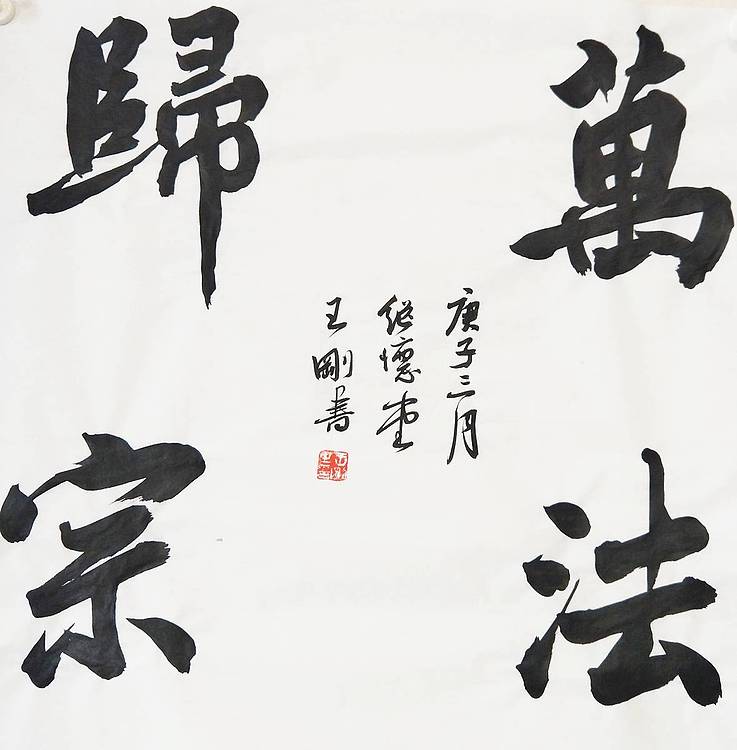 萬法
歸宗
庚子三月
继懷堂
王剛書